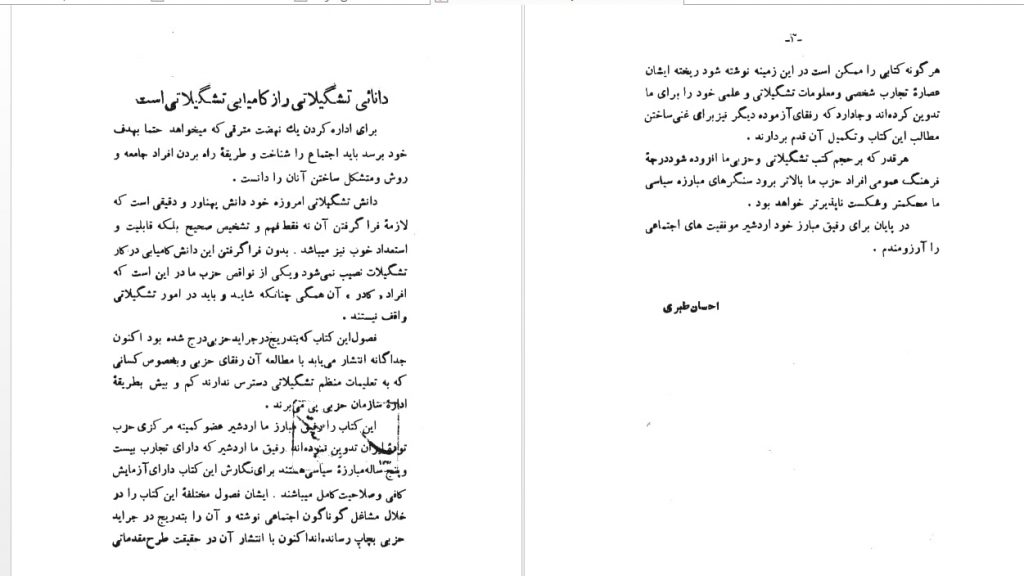 دانائی تشگیلاتی راز کامیابی تشگیلاتی است
برای اداره کردن یك نهضت مترقی که میخواهد حتما بهدف
خود برسد باید اجتماع را شناخت و طریقهٔ راه بردن افراد جامعه و
روش ومتشکل ساختن آنان را دانست .
دانش تشگیلاتی امروزه خود دانش پهناور و دقیقی است که
لازمهٔ فرا گرفتن آن نه فقط فهم و تشخیص صحیح بلکه قابلیت و
استعداد خوب نیز میباشد . بدون فراگرفتن این دانش کامیابی در کار
تشگیلات نصیب نمی‌شود ویکی از نواقص حزب ما در این است که
افراد «کادر» آن همگی چنانکه شاید و باید در امور تشگیلاتی
واقف نیستند .
فصول این کتاب که بتدریج در جراید حزبی درج شده بود اکنون
جداگانه انتشار می‌یابد با مطالعه آن رفقای حزبی وبخصوص کسانی
که به تعلیمات منظم تشگیلاتی دسترس ندارند کم و بیش بطریقهٔ
ادارهٔ سازمان حزبی پی می‌برند .
این کتاب را رفیق مبارز ما اردشیر عضو کمیته مرکزی حزب
تودهٔ ایران تدوین نموده‌اند رفیق ما اردشیر که دارای تجارب بیست
و پنج ساله مبارزهٔ سیاسی هستند برای نگارش این کتاب دارای آزمایش
کافی و صلاحیت کامل میباشند . ایشان فصول مختلفهٔ این کتاب را در
خلال مشاغل گوناگون اجتماعی نوشته و آن را بتدریج در جراید
حزبی بچاپ رسانده‌اند اکنون با انتشار آن در حقیقت طرح مقدماتی
-۳-
هر گونه کتابی را ممکن است در این زمینه نوشته شود ریخته ایشان
عصارهٔ تجارب شخصی ومعلومات تشگیلاتی و علمی خود را برای ما
تدوین کرده‌اند وجادارد که رفقای آزموده دیگر نیز برای غنی ساختن
مطالب این کتاب و تکمیل آن قدم بردارند .
هر قدر که بر حجم کتب تشگیلاتی و حزبی ما افزوده شود درجهٔ
فرهنگ عمومی افراد حزب ما بالاتر برود سنگرهای مبارزه سیاسی
ما محکمتر و شکست ناپذیرتر خواهد بود .
در پایان برای رفیق مبارز خود اردشیر موفقیت های اجتماعی
را آرزومندم .
احسان طبری